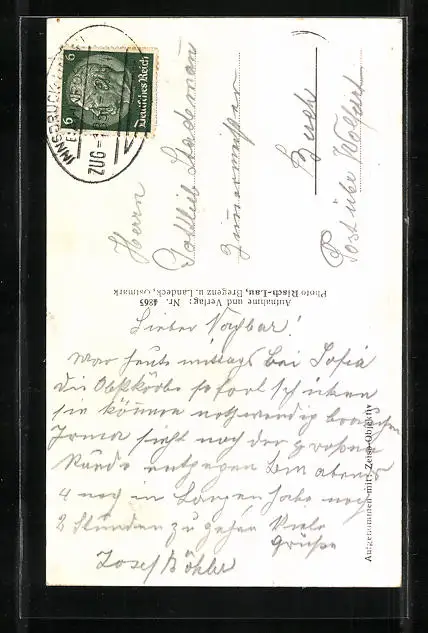 INNSBRUCK
ZUG
6 6
Deutsches Reich
Herrn
Gottlieb Stadelmann
Zimmermeister
Buch
Post über Wolfurt
Aufnahme und Verlag: Nr. 4865
Photo Risch-Lau, Bregenz u. Landeck, Ostmark
Lieber Nachbar!
War heute mittags bei Sofia
die Obstkörbe sofort schicken
sie können notwendig brauchen
Irma sieht noch der großen
Runde entgegen bin abends
4 noch in Langen habe noch
2 Stunden zu gehen Viele
Grüße
Josef Böhler
Aufgenommen mit Zeiss-Objektiv